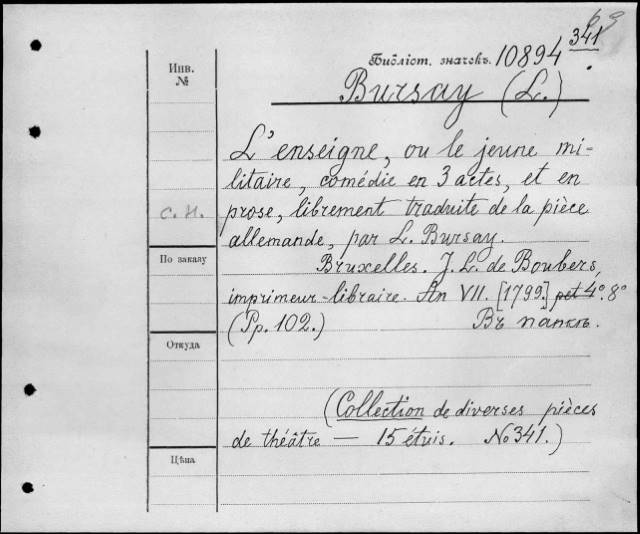 69
Библіот. значекъ. 10894 341
Инв.
№
Bursay (L.)
L'enseigne, ou le jeune mi-
litaire, comédie en 3 actes, et en
с. н.
prose, librement traduite de la pièce
allemande, par L. Bursay.
По заказу
Bruxelles. J. L. de Boubers,
imprimeur-libraire. An VII. [1799.] pet 4.° 8°
(Pp. 102.) Въ папкѣ.
Откуда
(Collection de diverses pièces
de théâtre — 15 étuis. № 341.)
Цѣна